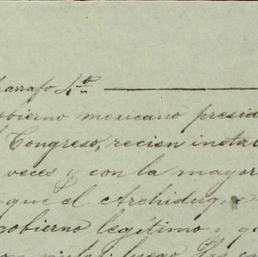 parrafo 4º
gobierno mexicano presid
Congreso, recien insta
veces y con la mayor
que el Archiduque
gobierno legítimo y q